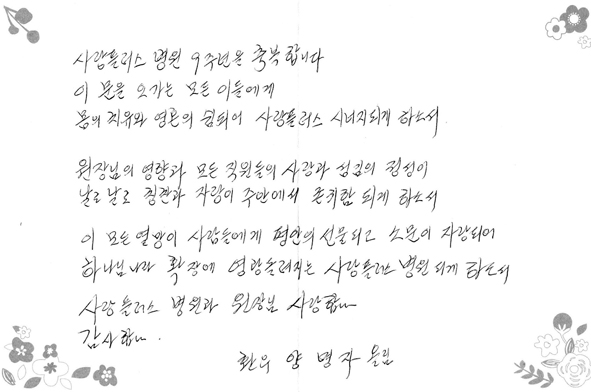 사랑플러스 병원 9주년을 축복합니다
이 문을 오가는 모든 이들에게
몸의 치유와 영혼의 쉼되어 사랑플러스 시너지되게 하소서
원장님의 영향과 모든 직원들의 사랑과 섬김의 정성이
날로 날로 칭찬과 자랑이 주안에서 존귀함 되게 하소서
이 모든 열방이 사람들에게 평안의 선물되고 소문이 자랑되어
하나님나라 확장에 영광올려지는 사랑플러스병원 되게 하소서
사랑플러스 병원과 원장님 사랑합니다
감사합니다.
환우 양명자 올림